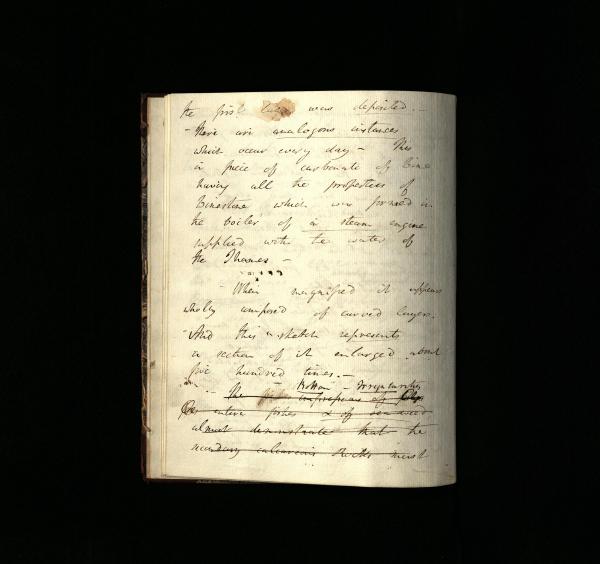 the first was deposited. —
- There are analogous instances
which occur every day - This
is a piece of carbonate of Lime
having all the properties of
Limestone which was formed in
the boiler of a steam engine
supplied with the water of
the Thames -
- When magnified it appears
wholly composed of curved layers.
- And this sketch represents
a section of it enlarged about
five hundred times. —
The impressions of
entire fishes & of sea weed
almost demonstrate that the
secondary calcareous Rocks must